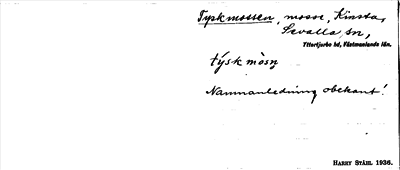 Tyskmossen, mosse, Kinsta,
Sevalla sn,
Yttertjurbo hd, Västmanlands län.
týsk mòsn
Namnanledning obekant!
HARRY STÅHL 1936.